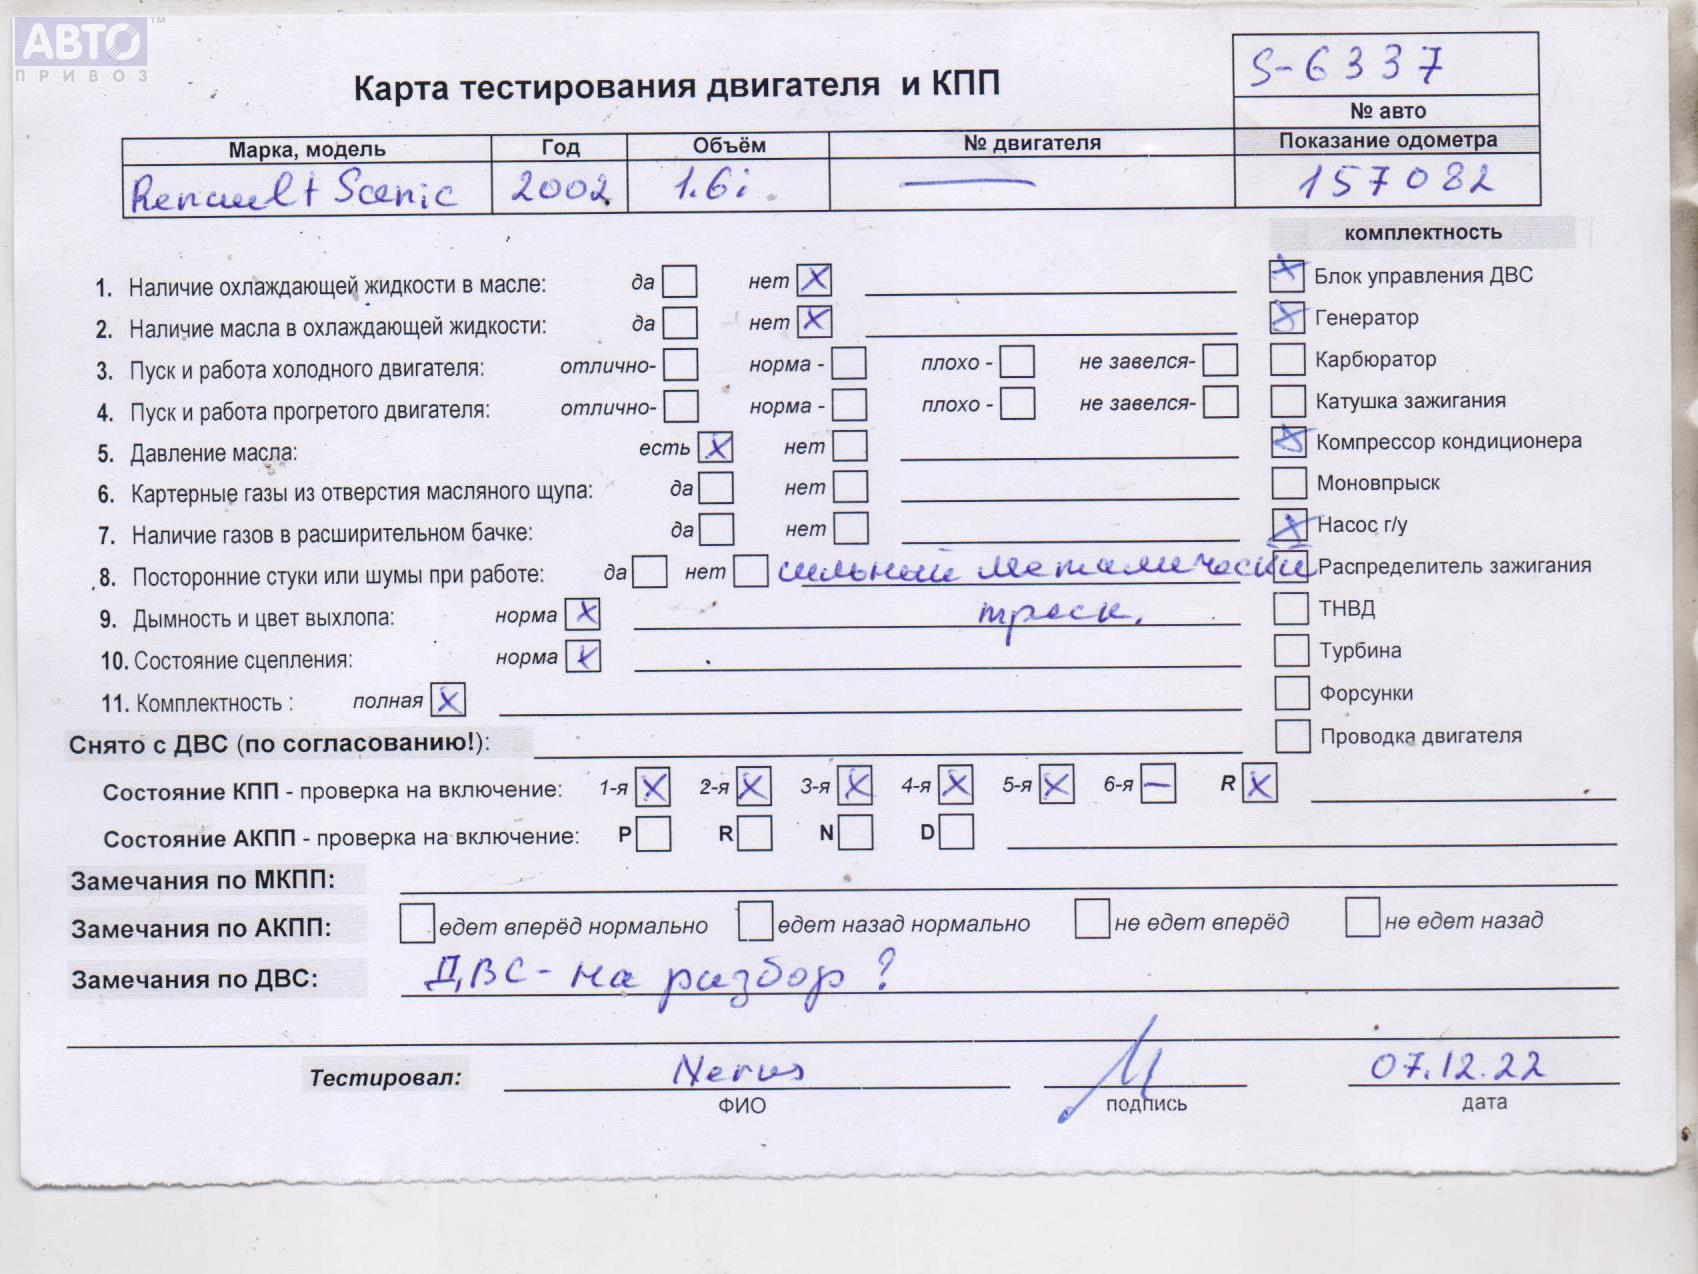 АВТО™
ПРИВОЗ
S-6337
Карта тестирования двигателя и КПП
№ авто
Марка, модель Год Объём № двигателя Показание одометра
Renault Scenic 2002 1.6i — 157082
комплектность
1. Наличие охлаждающей жидкости в масле: да нет X Блок управления ДВС X
2. Наличие масла в охлаждающей жидкости: да нет X Генератор X
3. Пуск и работа холодного двигателя: отлично- норма - плохо - не завелся- Карбюратор
4. Пуск и работа прогретого двигателя: отлично- норма - плохо - не завелся- Катушка зажигания
5. Давление масла: есть X нет X Компрессор кондиционера
6. Картерные газы из отверстия масляного щупа: да нет Моновпрыск
7. Наличие газов в расширительном бачке: да нет X Насос г/у
8. Посторонние стуки или шумы при работе: да нет сильный металически Распределитель зажигания
треск.
9. Дымность и цвет выхлопа: норма X ТНВД
10. Состояние сцепления: норма X Турбина
11. Комплектность : полная X Форсунки
Снято с ДВС (по согласованию!): Проводка двигателя
Состояние КПП - проверка на включение: 1-я X 2-я X 3-я X 4-я X 5-я X 6-я — R X
Состояние АКПП - проверка на включение: P R N D
Замечания по МКПП:
Замечания по АКПП: едет вперёд нормально едет назад нормально не едет вперёд не едет назад
Замечания по ДВС: ДВС - на разбор?
Тестировал: 07.12.22
ФИО подпись дата